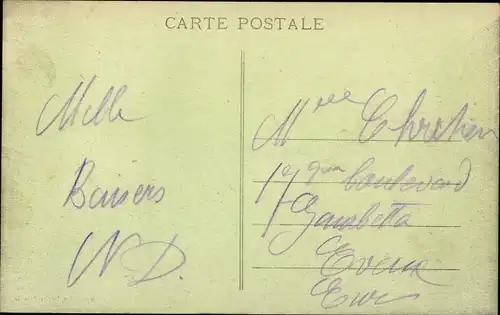 CARTE POSTALE
Mille
Baisers
ND.
Mlle Chretien
17 boulevard
Gambetta
Evreux
Eure